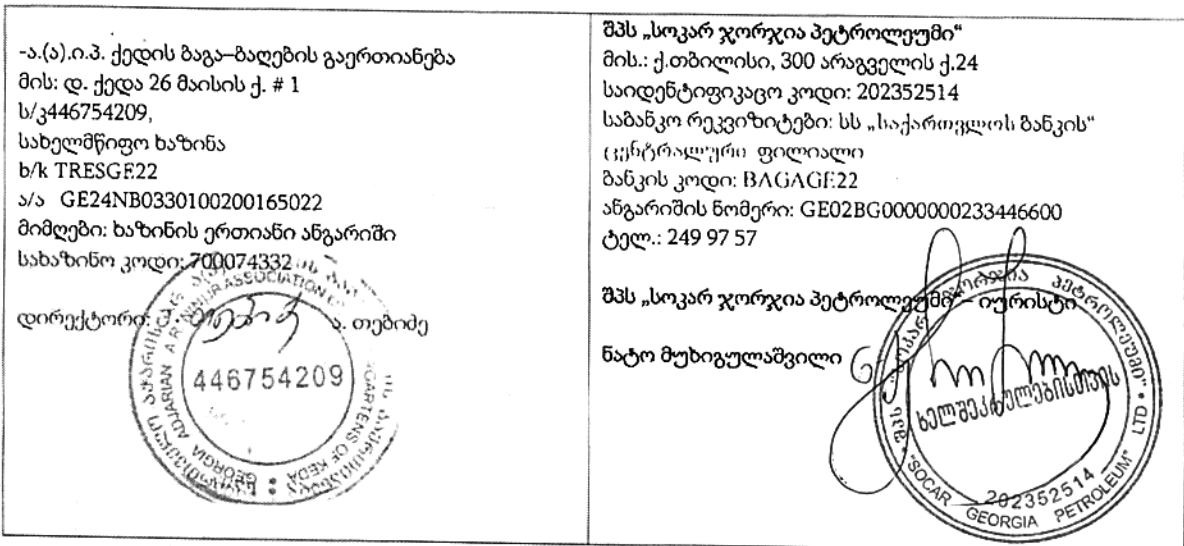 -ა.(ა).ი.პ. ქედის ბაგა–ბაღების გაერთიანება
მის: დ. ქედა 26 მაისის ქ. # 1
ს/კ446754209,
სახელმწიფო ხაზინა
b/k TRESGE22
ა/ა GE24NB0330100200165022
მიმღები: ხაზინის ერთიანი ანგარიში
სახაზინო კოდი: 700074332
დირექტორი: ა. თებიძე
446754209
GEORGIA ADJARIAN A.R.
ASSOCIATION
KINDERGARTENS OF KEDA
შპს „სოკარ ჯორჯია პეტროლეუმი“
მის.: ქ.თბილისი, 300 არაგველის ქ.24
საიდენტიფიკაცო კოდი: 202352514
საბანკო რეკვიზიტები: სს „საქართველოს ბანკის“
ცენტრალური ფილიალი
ბანკის კოდი: BAGAGE22
ანგარიშის ნომერი: GE02BG0000000233446600
ტელ.: 249 97 57
შპს „სოკარ ჯორჯია პეტროლეუმი“ – იურისტი
ნატო მუხიგულაშვილი
შპს "სოკარ ჯორჯია პეტროლეუმი"
ხელშეკრულებისთვის
202352514
"SOCAR GEORGIA PETROLEUM" LTD